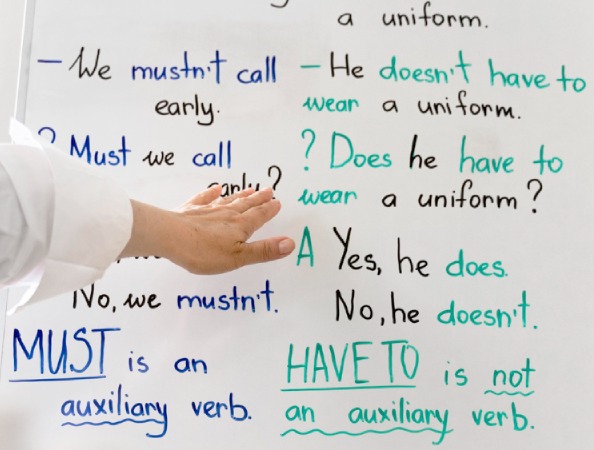 – We mustn't call
early.
? Must we call
early?
No, we mustn't.
MUST is an
auxiliary verb.
a uniform.
– He doesn't have to
wear a uniform.
? Does he have to
wear a uniform?
A Yes, he does.
No, he doesn't.
HAVE TO is not
an auxiliary verb.